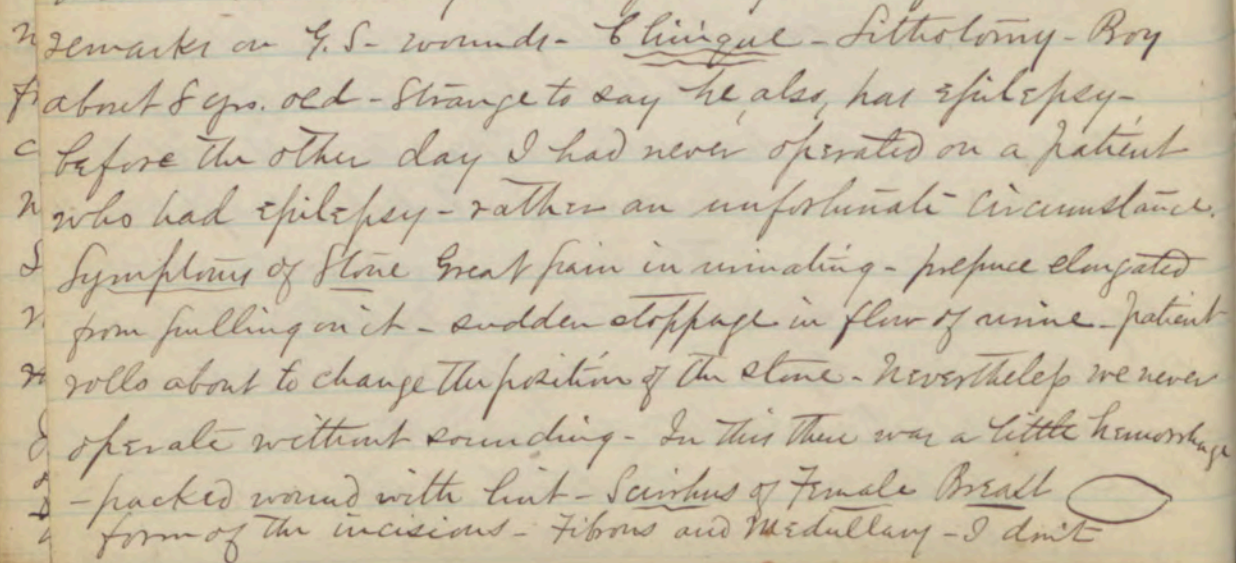 remarks on G. S. wounds - Clinique - Lithotomy - Boy
about 8 yrs. old - Strange to say he, also, has epilepsy -
before the other day I had never operated on a patient
who had epilepsy - rather an unfortunate circumstance.
Symptoms of Stone Great pain in urinating - prepuce elongated
from pulling on it - sudden stoppage in flow of urine - patient
rolls about to change the position of the stone - Nevertheless we never
operate without sounding - In this there was a little hemorrhage
- packed wound with lint - Scirrhus of Female Breast
form of the incisions - Fibrous and Medullary - I don't